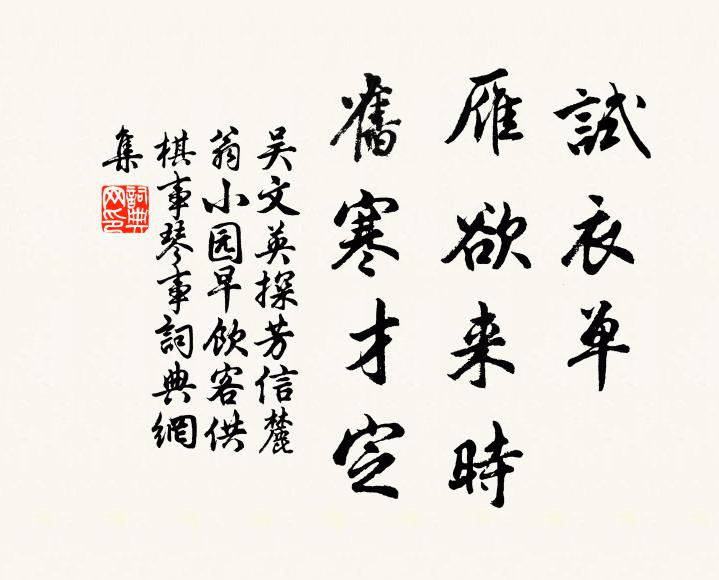 試衣单
雁欲来時
舊寒才定
吴文英探芳信麓
翁小园早飲客供
棋事琴事詞典網
集
詞典網印